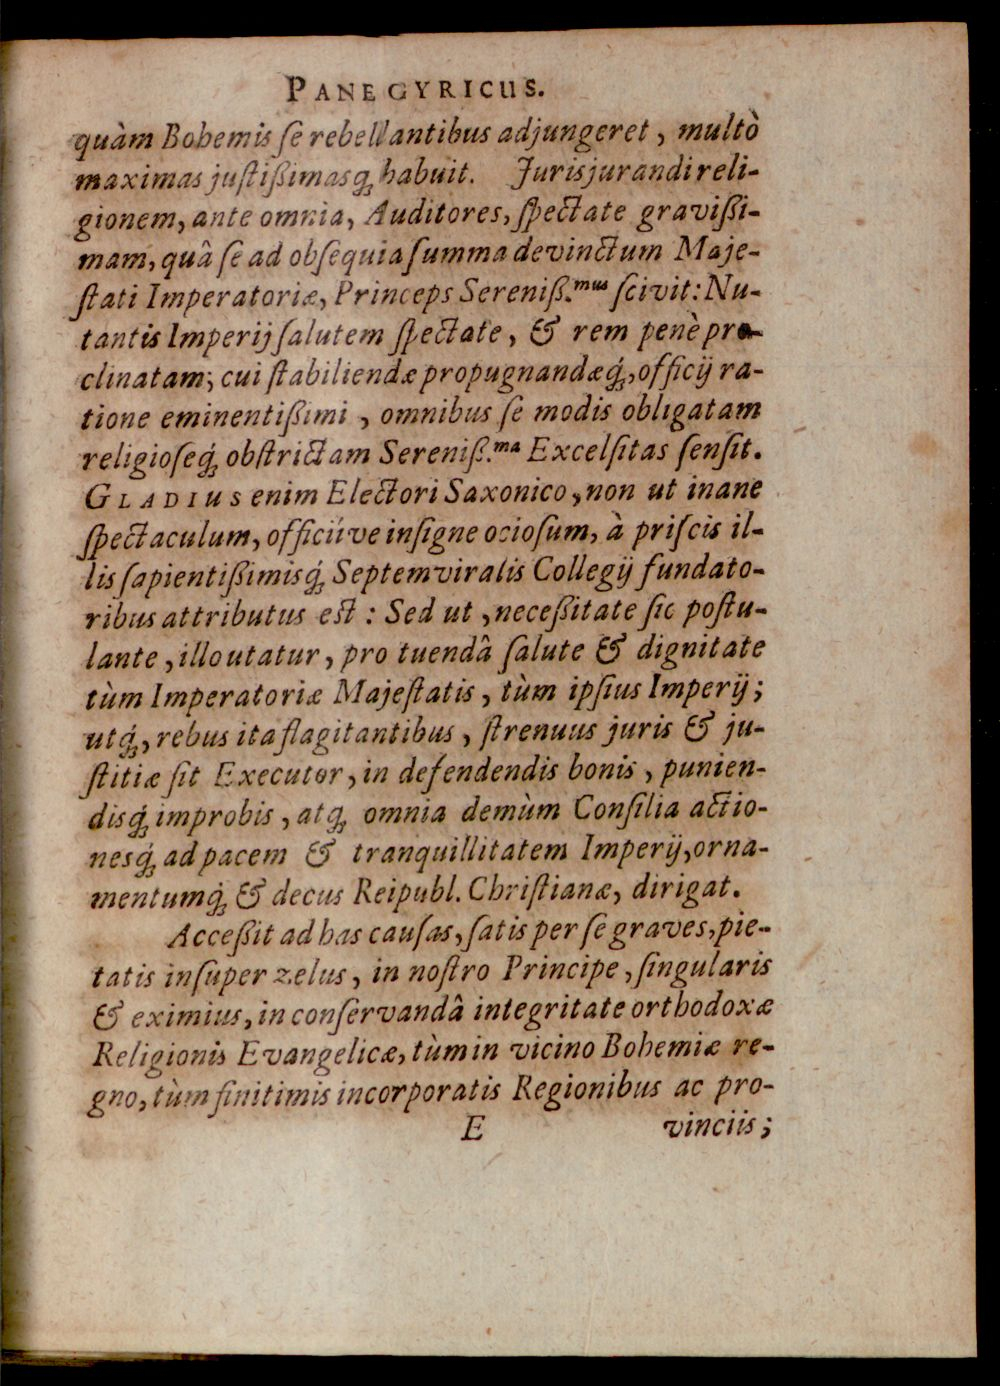 PANEGYRICUS.
quàm Bohemis ſe rebellantibus adjungeret, multò
maximas juſtißimasq́ꝫ habuit. Jurisjurandi reli-
gionem, ante omnia, Auditores, ſpectate gravißi-
mam, quâ ſe ad obſequia ſumma devinctum Maje-
ſtati Imperatoriæ, Princeps Sereniß.mus ſcivit: Nu-
tantis Imperij ſalutem ſpectate, & rem penè pro-
clinatam; cui ſtabiliendæ propugnandæq́ꝫ, officij ra-
tione eminentißimi, omnibus ſe modis obligatam
religioſeq́ꝫ obſtrictam Sereniß.ma Excelſitas ſenſit.
GLADIUS enim Electori Saxonico, non ut inane
ſpectaculum, officiíve inſigne ocioſum, à priſcis il-
lis ſapientißimisq́ꝫ Septemviralis Collegij fundato-
ribus attributus est: Sed ut, neceßitate ſic poſtu-
lante, illo utatur, pro tuendâ ſalute & dignitate
tùm Imperatoriæ Majeſtatis, tùm ipſius Imperij;
utq́ꝫ, rebus ita flagitantibus, ſtrenuus juris & ju-
ſtitiæ ſit Executor, in defendendis bonis, punien-
disq́ꝫ improbis, atqꝫ omnia demùm Conſilia actio-
nesq́ꝫ ad pacem & tranquillitatem Imperij, orna-
mentumq́ꝫ & decus Reipubl. Chriſtianæ, dirigat.
Acceßit ad has cauſas, ſatis per ſe graves, pie-
tatis inſuper zelus, in noſtro Principe, ſingularis
& eximius, in conſervandâ integritate orthodoxæ
Religionis Evangelicæ, tùm in vicino Bohemiæ re-
gno, tùm finitimis incorporatis Regionibus ac pro-
E vinciis;